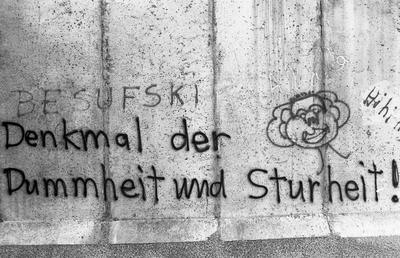 BESUFSKI
Denkmal der
Dummheit und Sturheit!
Hihi